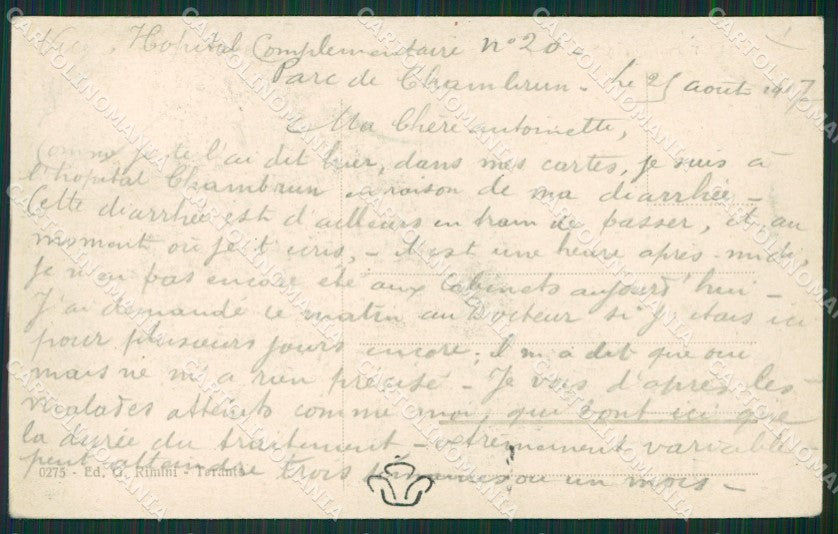 Nice, Hopital Complementaire n° 20 -
Parc de Chambrun - Le 25 août 1917
Ma Chère antoinette,
Comme je te l'ai dit hier, dans mes cartes, je suis à
l'hopital Chambrun à raison de ma diarrhée -
Cette diarrhée est d'ailleurs en train de passer, et, au
moment où je t'écris, - il est une heure après-midi,
je n'ai pas encore été aux cabinets aujourd'hui -
J'ai demandé ce matin au Docteur si j'étais ici
pour plusieurs jours encore ; il m'a dit que oui
mais ne m'a rien précisé - Je vois d'après les
malades atteints comme moi, qui sont ici que
la durée du traitement - extrêmement variable
peut atteindre trois semaines ou un mois -
0275 - Ed. G. Rimini - Taranto
CARTOLINOMANIA